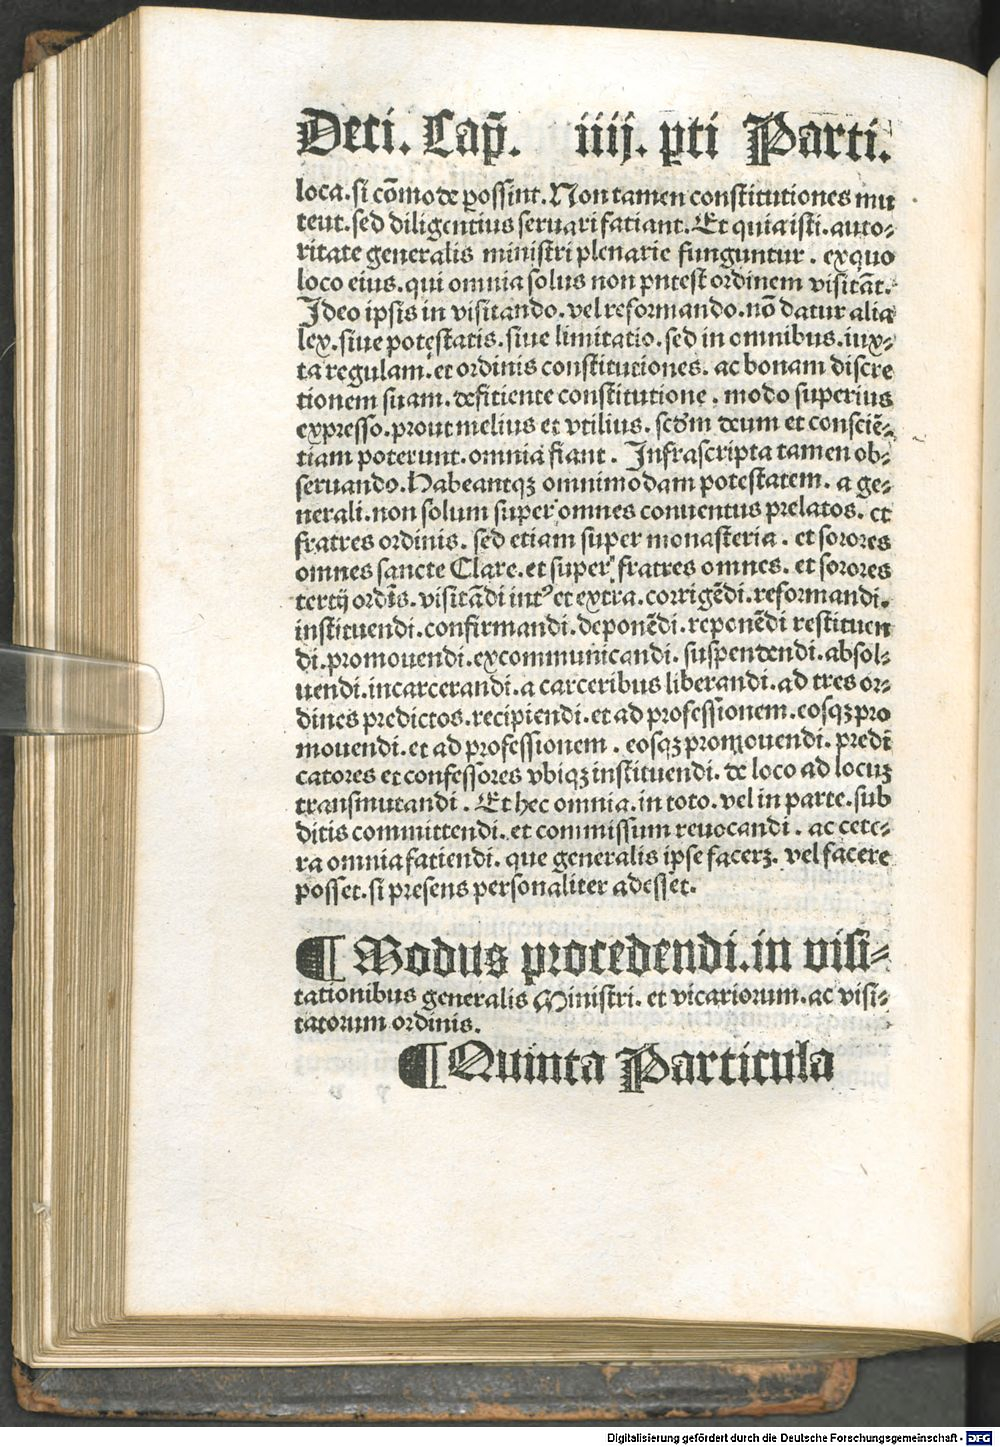 Deci. Cap̄. iiij. pti Parti.
loca. si cōmode possint. Non tamen constitutiones mu
tent. sed diligentius seruari fatiant. Et quia isti. auto-
ritate generalis ministri plenarie funguntur. exquo
loco eius. qui omnia solus non pntest ordinem visitāt.
Ideo ipsis in visitando. vel reformando. nō datur alia
lex. siue potestatis. siue limitatio. sed in omnibus. iux-
ta regulam. et ordinis constitutiones. ac bonam discre
tionem suam. defitiente constitutione. modo superius
expresso. prout melius et vtilius. scd̄m deum et consciē-
tiam poterunt. omnia fiant. Infrascripta tamen ob-
seruando. Habeantqꝫ omnimodam potestatem. a ge-
nerali. non solum super omnes conuentus prelatos. et
fratres ordinis. sed etiam super monasteria. et sorores
omnes sancte Clare. et super fratres omnes. et sorores
tertij ordīs. visitādi intꝰ et extra. corrigēdi. reformandi.
instituendi. confirmandi. deponēdi. reponēdi restituen
di. promouendi. excommunicandi. suspendendi. absol-
uendi. incarcerandi. a carceribus liberandi. ad tres or-
dines predictos. recipiendi. et ad professionem. eosqꝫ pro
mouendi. et ad professionem. eosqꝫ promouendi. predi
catores et confessores vbiqꝫ instituendi. de loco ad locuꝫ
transmutandi. Et hec omnia. in toto. vel in parte. sub
ditis committendi. et commissum reuocandi. ac cete-
ra omnia fatiendi. que generalis ipse facerꝫ. vel facere
posset. si presens personaliter adesset.
¶ Modus procedendi. in visi-
tationibus generalis Ministri. et vicariorum. ac visi-
tatorum ordinis.
¶ Quinta Particula
Digitalisierung gefördert durch die Deutsche Forschungsgemeinschaft - DFG